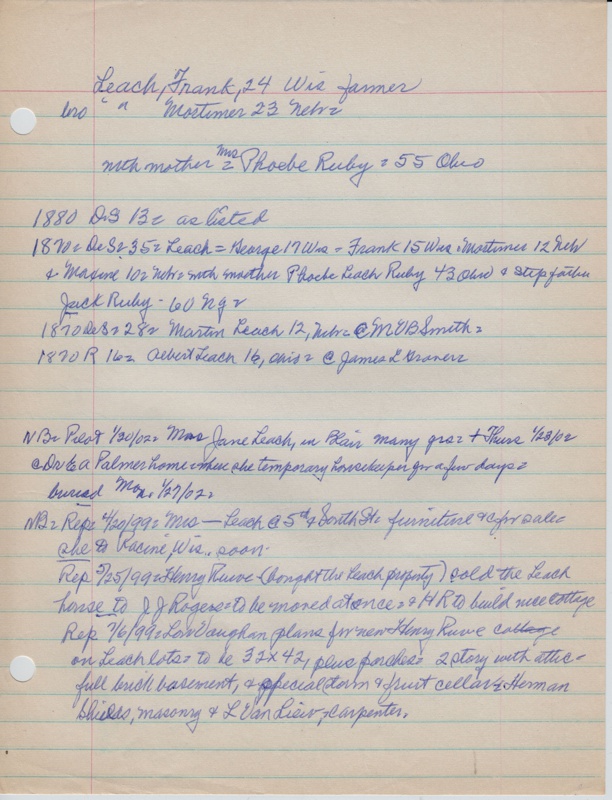 Leach, Frank, 24 Wis farmer
bro " Mortimer 23 Nebr =
with mother = Mrs Phoebe Ruby = 55 Ohio
1880 DeS B= as listed
1870 = DeS = 35 = Leach = George 17 Wis - Frank 15 Wis. Mortimer 12 Nebr
& 10 = Nebr = with mother Phoebe Leach Ruby 43 Ohio & stepfather
Jack Ruby - 60 Ng =
1870 DeS = 28 = Martin Leach 12, Nebr = @ M V B Smith =
1870 R 16 = Albert Leach 16, Ohio = @ James L
NB = Pilot 1/30/02 = Mrs Jane Leach, in Blair many yrs = + Thurs 1/23/02
@ Dr E a Palmer home where she temporary housekeeper for a few days =
buried Mon. 1/27/02 =
NB = Rep = 4/20/99 = Mrs — Leach @ 5th & South St = furniture & c for sale =
she to Racine, Wis., soon.
Rep 5/25/99 = Henry Ruwe (bought the Leach property) sold the Leach
house to J J Rogers = to be moved at once = & HR to build nice cottage
Rep 7/6/99 = Lou Vaughan plans for new Henry Ruwe cottage
on Leach lots = to be 32 x 42, plus porches = 2 story with attic =
full brick basement, & special storm & fruit cellar = Herman
Shields, masonry & L Van Liew, carpenter.